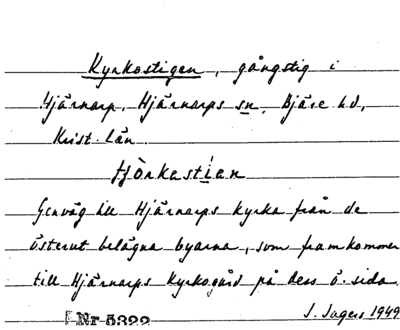 Kyrkostigen, gångstig i
Hjärnarp, Hjärnarps sn, Bjäre hd,
Krist. län
tjörkastían
Genväg till Hjärnarps kyrka från de
österut belägna byarna, som framkommer
till Hjärnarps kyrkogård på dess ö. sida.
Nr 5322
J. Sagers 1949